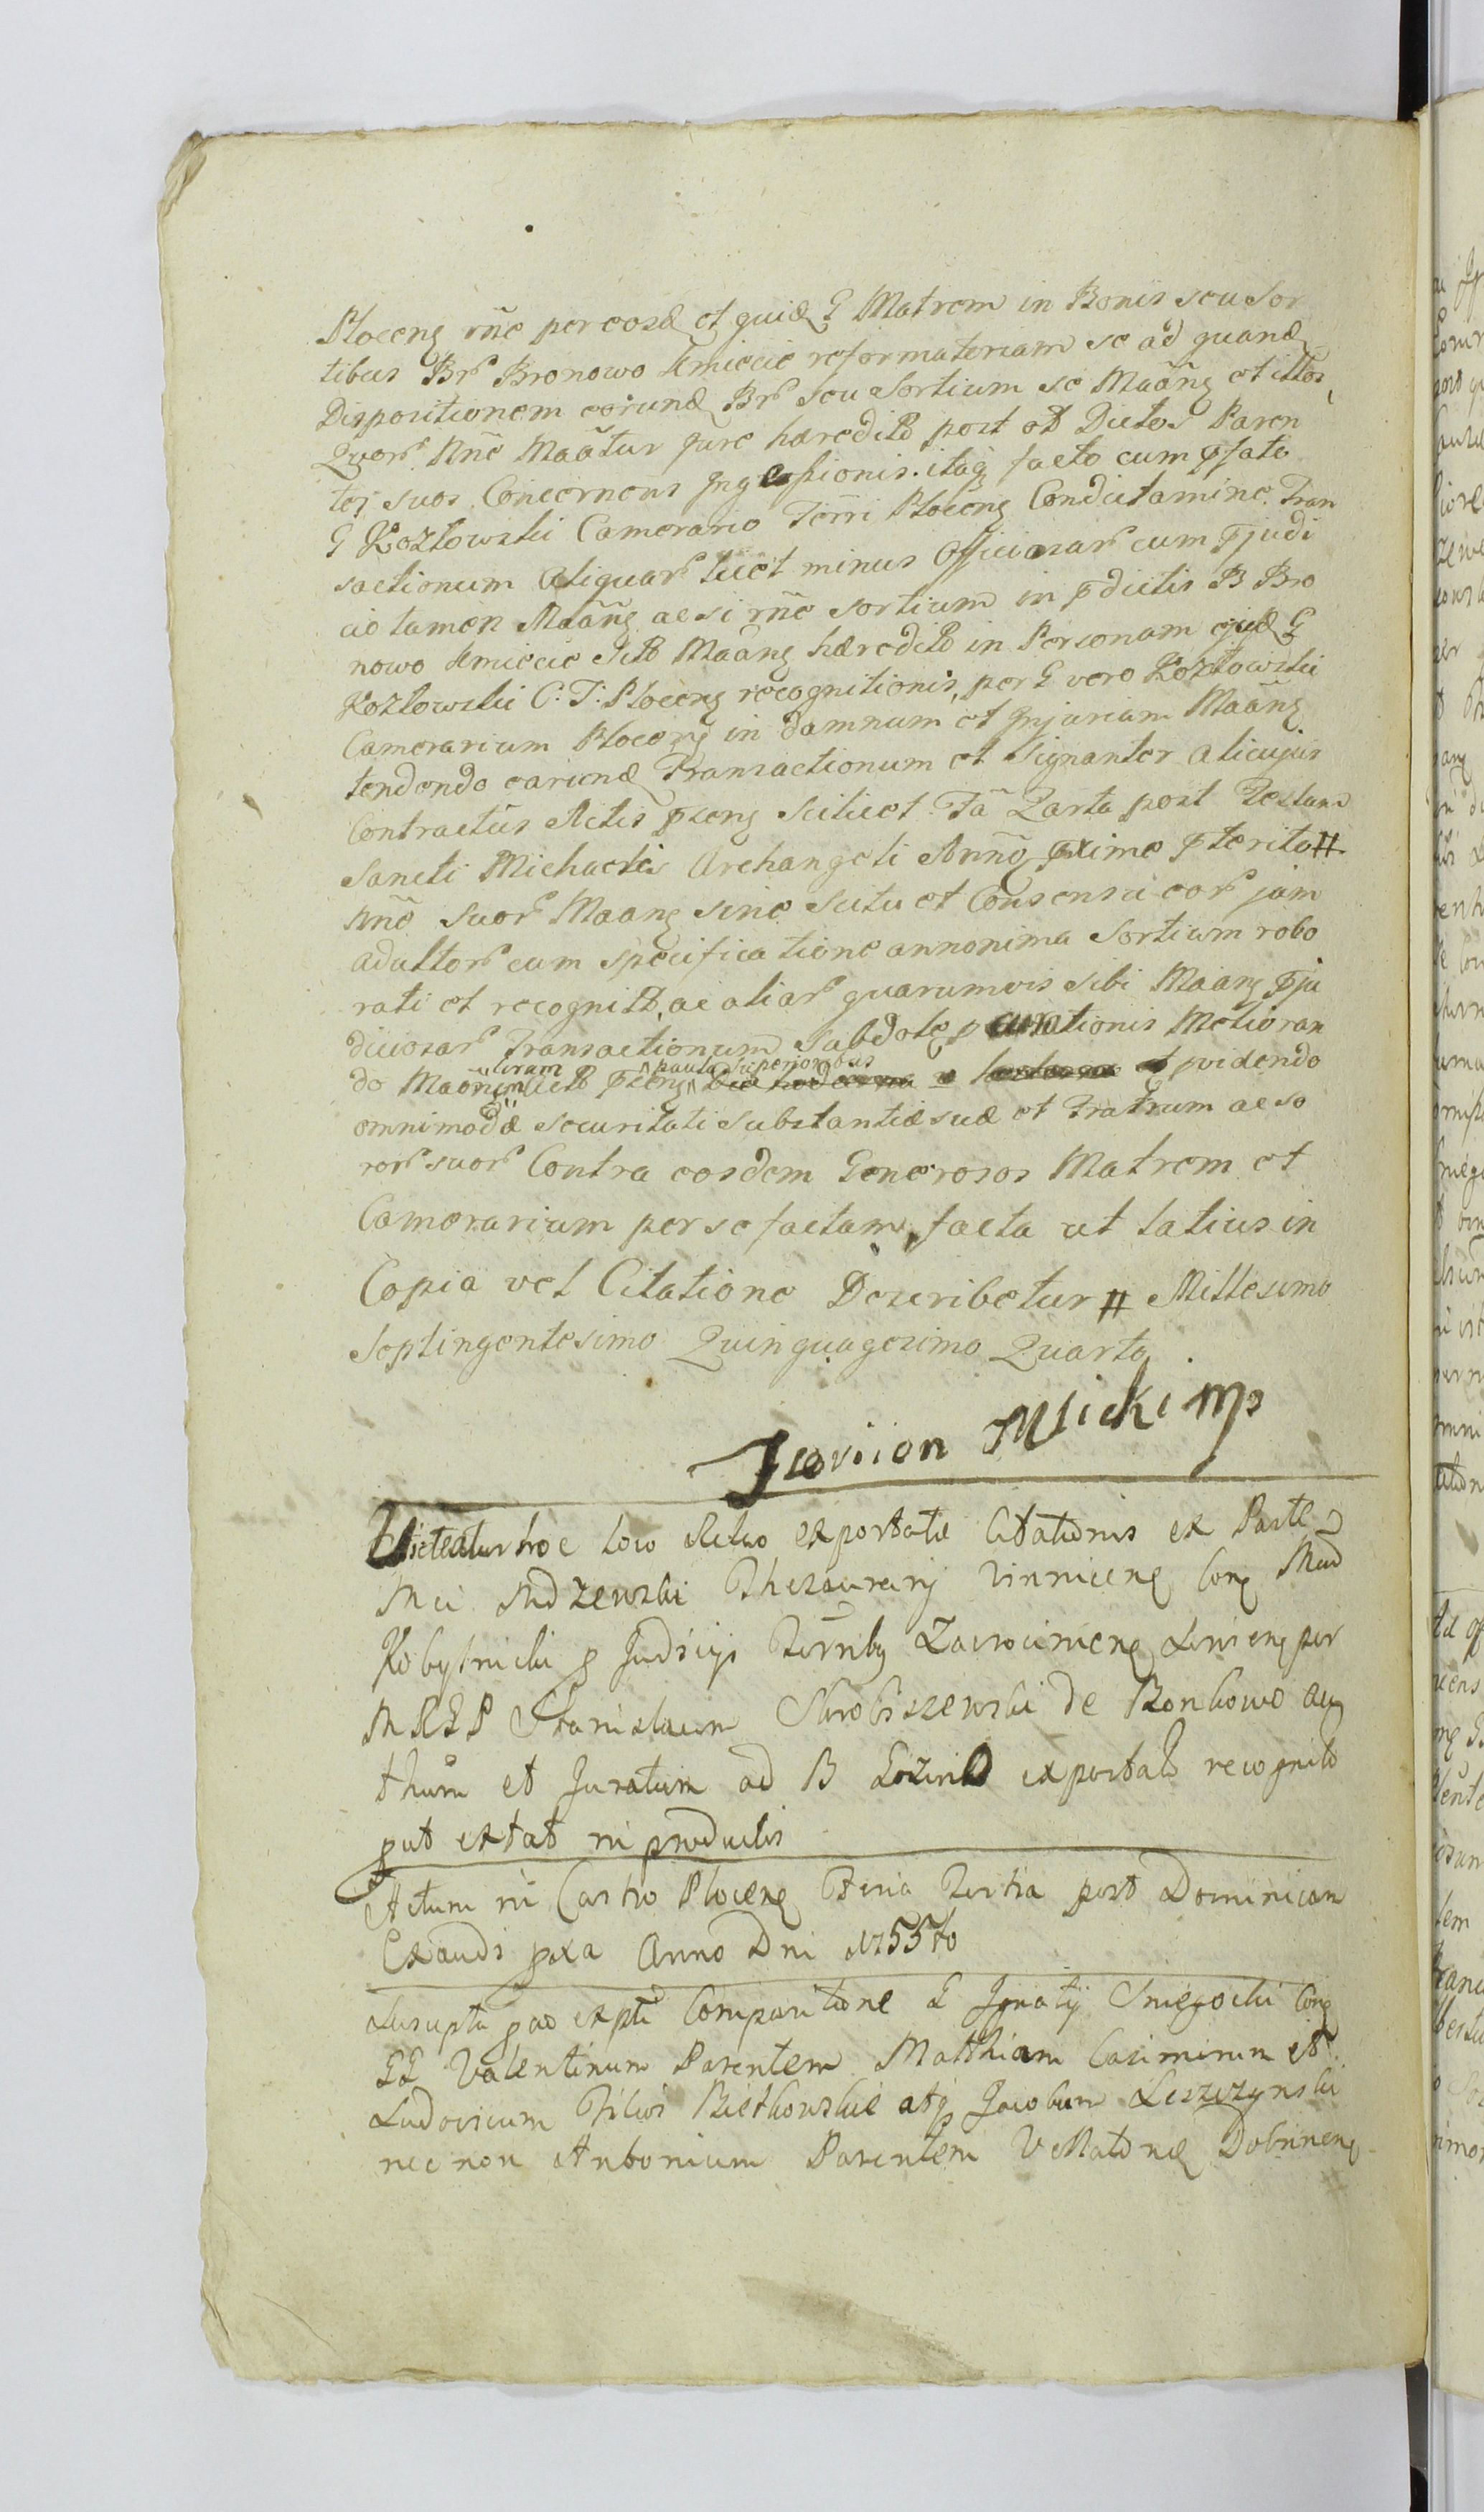 Ploceng rñe per eosd et quid G Matrem in Bonis seu Sor
tibus Br Bronowo Kmiecie reformatoriam se ad quand
Dispositionem eorund Br seu Sortium se Maãng et illos
Quor Nñe Maãtur jure hæredito post ol Dictos Paren
tes suos Concernens Ingressionis. itaq facto cum pfato
G Kozłowski Camerario Terri Ploceng Condictamine Tran
sactionum Aliquar licet minus Officiosar cum pjudi
cio tamen Maãng ac si rñe sortium in pdictis B Bro
nowo Kmiecie Maãng hæredito in Personam ejusd G
Kozłowski C: T: Ploceng recognitionis, per G vero Kozłowski
Camerarium Ploceng in damnum et Injuriam Maãng
tendendo earund Transactionum et Signanter alicujus
Contractus Actis pseng Scilicet Fã Qarta post Festum
Sancti Michaelis Archangeli Anno pxime pterito #
nñe suor Maang sine scitu et Consensu eor jam
adultor cum specificatione annonima Sortium robo
rati et recognit, ac aliar quarumvis sibi Maang pju
diciosar Transactionum Subdole pcurationis Melioran
do Maonem pseng paulo superioribus et pvidendo
omnimodæ securitati substantiæ suæ et Fratrum ac so
ror suor Contra eosdem Generosos Matrem et
Camerarium per se factam, facta ut latius in
Copia vel Citatione Describetur # Millesimo
Septingentesimo Quinquagesimo Quarto
Micki mp
hoc loco Relao exportatæ Citationis ex Parte
Mci Thesaurarij Vinniceng Cong Mcu
Kobylnicki p Judicijs Terrib Zacrocimeng per
M R G P Stanislaum Skrobiszewski de Bonkowo au
thum et Juratum ad B exportat recognit
put extat in productis
Actum in Castro Ploceng Feria Tertia post Dominicam
Exaudi pxa Anno Dni 1755to
Suscepta pao expte Comparitione G Ignatij Sniegocki Cong
GG Valentinum Parentem Matthiam Casimirum et
Ludovicum Filios Bietkowskie atq Jacobum Leszczynski
nec non Antonium Parentem Dobrineng